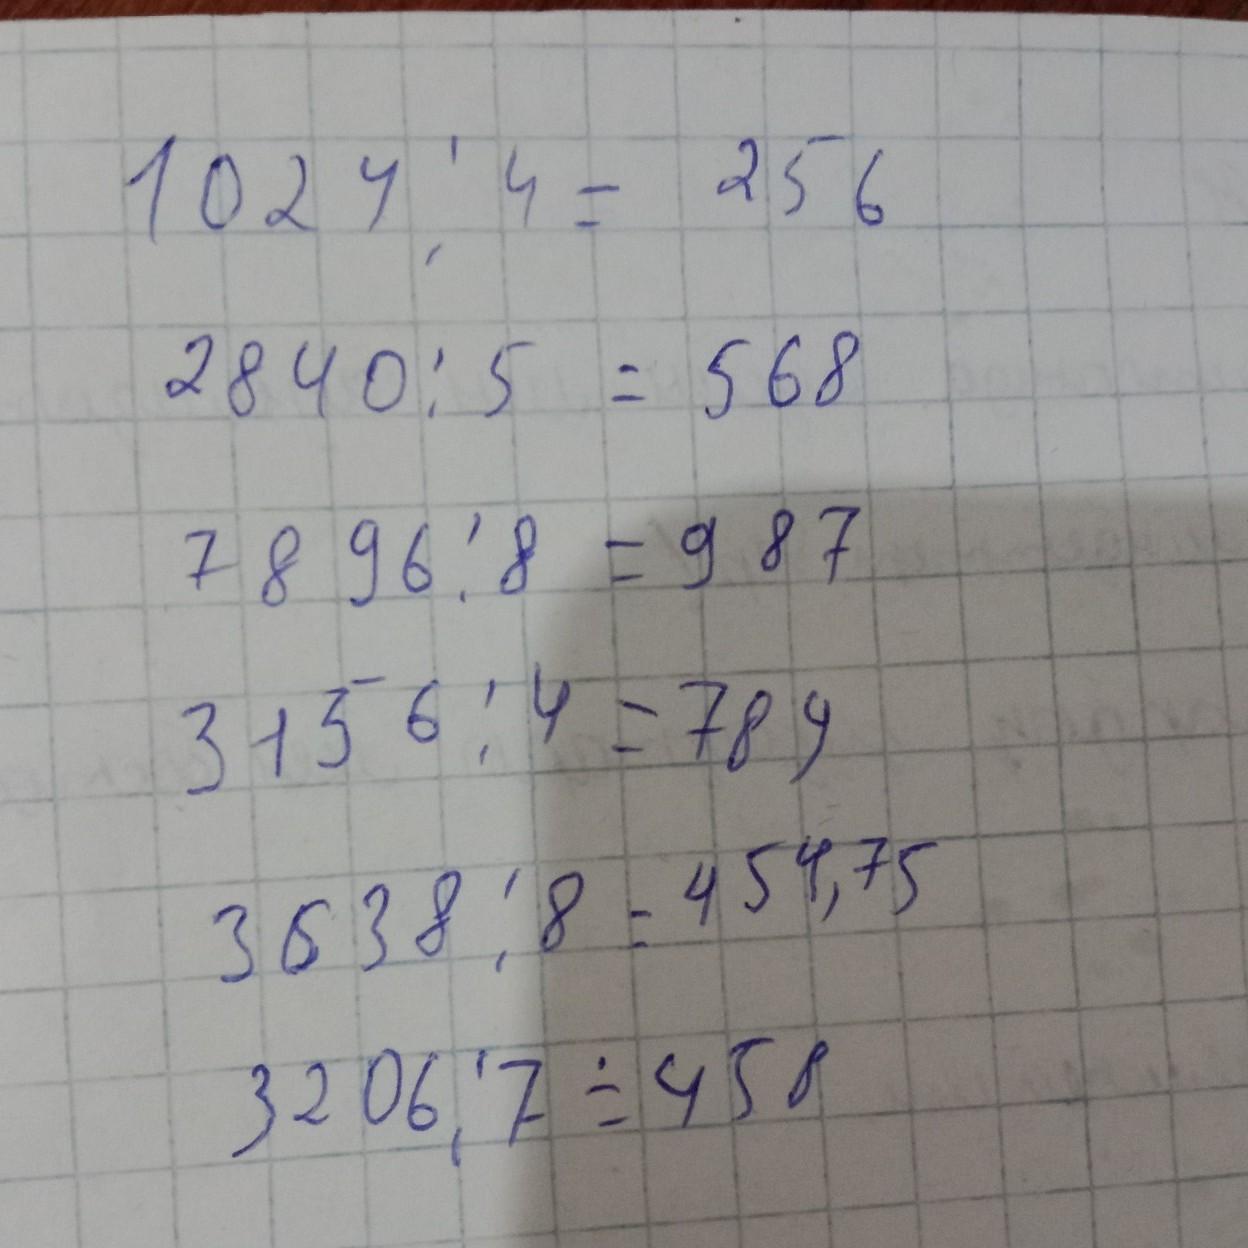 1024 : 4 = 256
2840 : 5 = 568
7896 : 8 = 987
3156 : 4 = 789
3638 : 8 = 454,75
3206 : 7 = 458